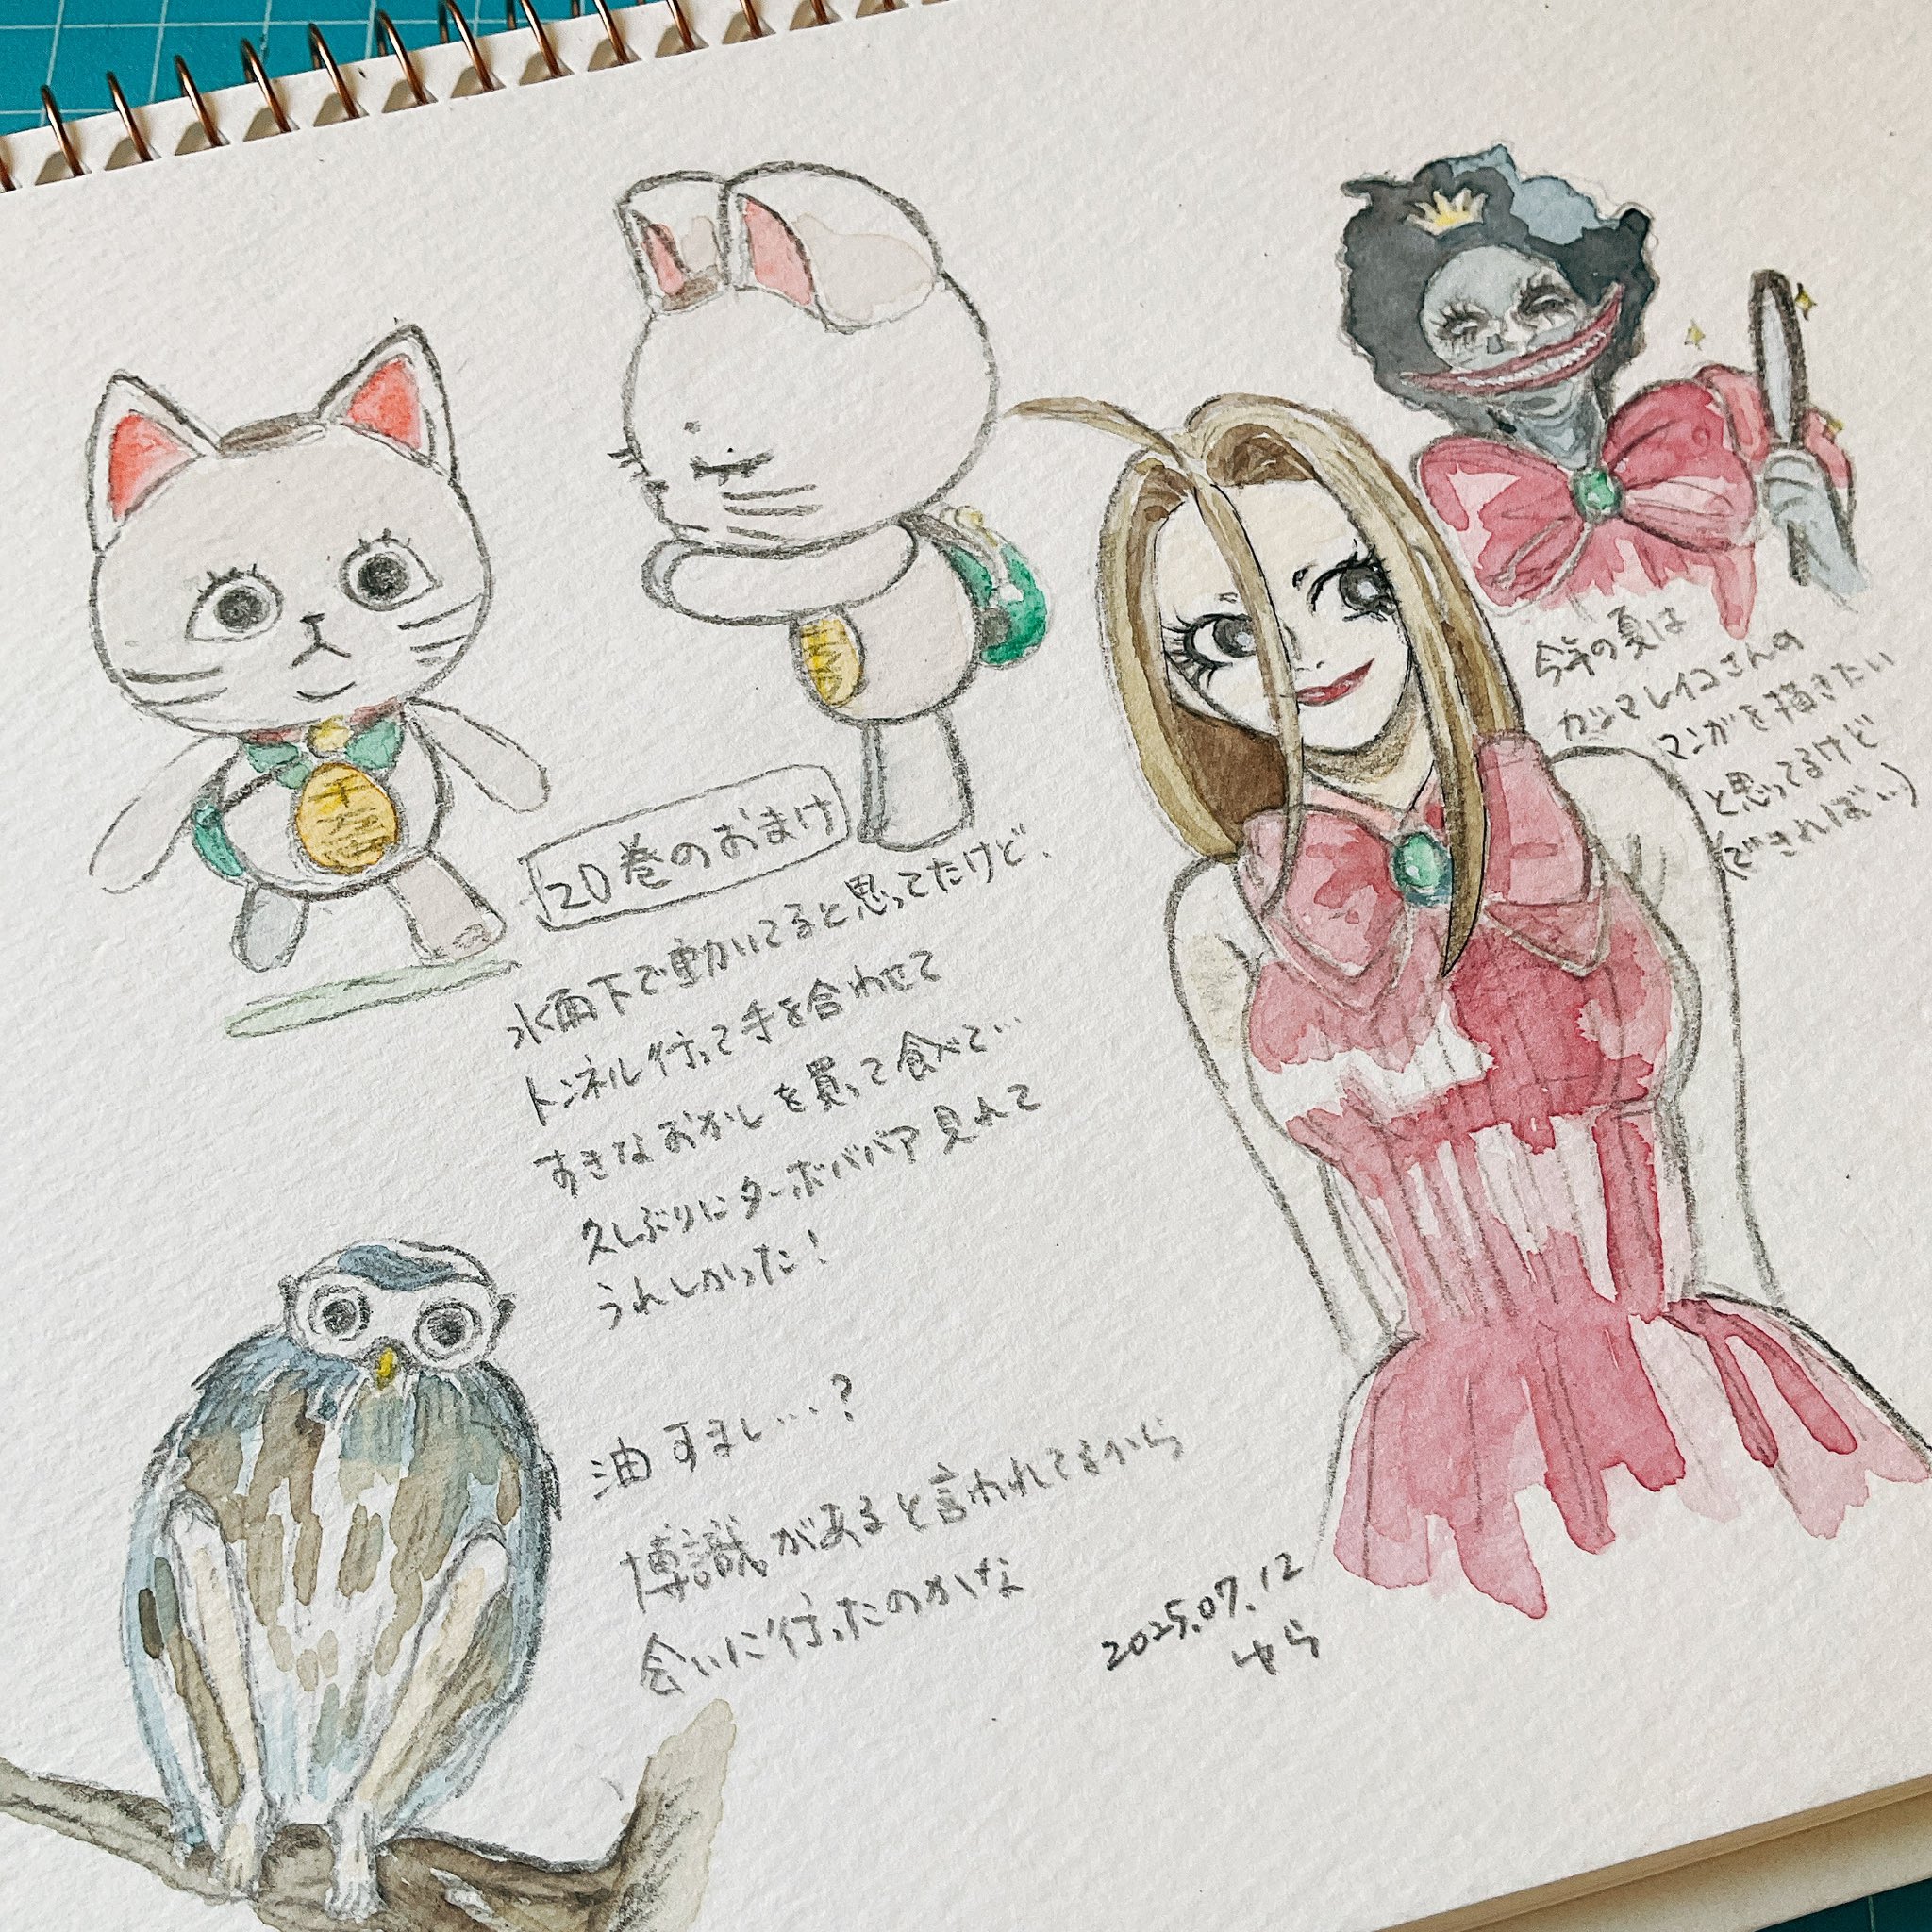 今年の夏は
カシマレイコさんの
マンガを描きたい
と思ってるけど
(できればい)
20巻のおまけ
水面下で動いてると思ってたけど、
トンネル行って手を合わせて
すきなおかしを買って食べて…
久しぶりにターボババア見れて
うれしかった!
油すまし…?
博識があると言われてるから
会いに行ったのかな
2025.07.12
ゆら